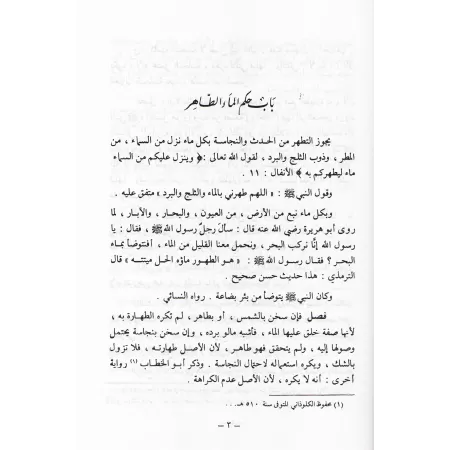 باب حكم الماء الطاهر
يجوز التطهر من الحدث والنجاسة بكل ماء نزل من السماء ، من
المطر ، وذوب الثلج والبرد ، لقول الله تعالى :﴿ وينزل عليكم من السماء
ماء ليطهركم به ﴾ الأنفال : ١١ .
وقول النبي ﷺ : « اللهم طهرني بالماء والثلج والبرد » متفق عليه .
وبكل ماء نبع من الأرض ، من العيون ، والبحار ، والآبار ، لما
روى أبو هريرة رضي الله عنه قال : سأل رجل رسول الله ﷺ ، فقال : يا
رسول الله إنا نركب البحر ، ونحمل معنا القليل من الماء ، أفنتوضأ بماء
البحر ؟ فقال رسول الله ﷺ : « هو الطهور ماؤه الحل ميتته » قال
الترمذي : هذا حديث حسن صحيح .
وكان النبي ﷺ يتوضأ من بئر بضاعة . رواه النسائي .
فصل فإن سخن بالشمس ، أو بطاهر ، لم تكره الطهارة به ،
لأنها صفة خلق عليها الماء ، فأشبه مالو برده ، وإن سخن بنجاسة يحتمل
وصولها إليه ، ولم يتحقق فهو طاهر ، لأن الأصل طهارته ، فلا تزول
بالشك ، ويكره استعماله لاحتمال النجاسة . وذكر أبو الخطاب (١) رواية
أخرى : أنه لا يكره ، لأن الأصل عدم الكراهة .
(١) محفوظ الكلوذاني المتوفى سنة ٥١٠ هـ . . .
– ٣ –